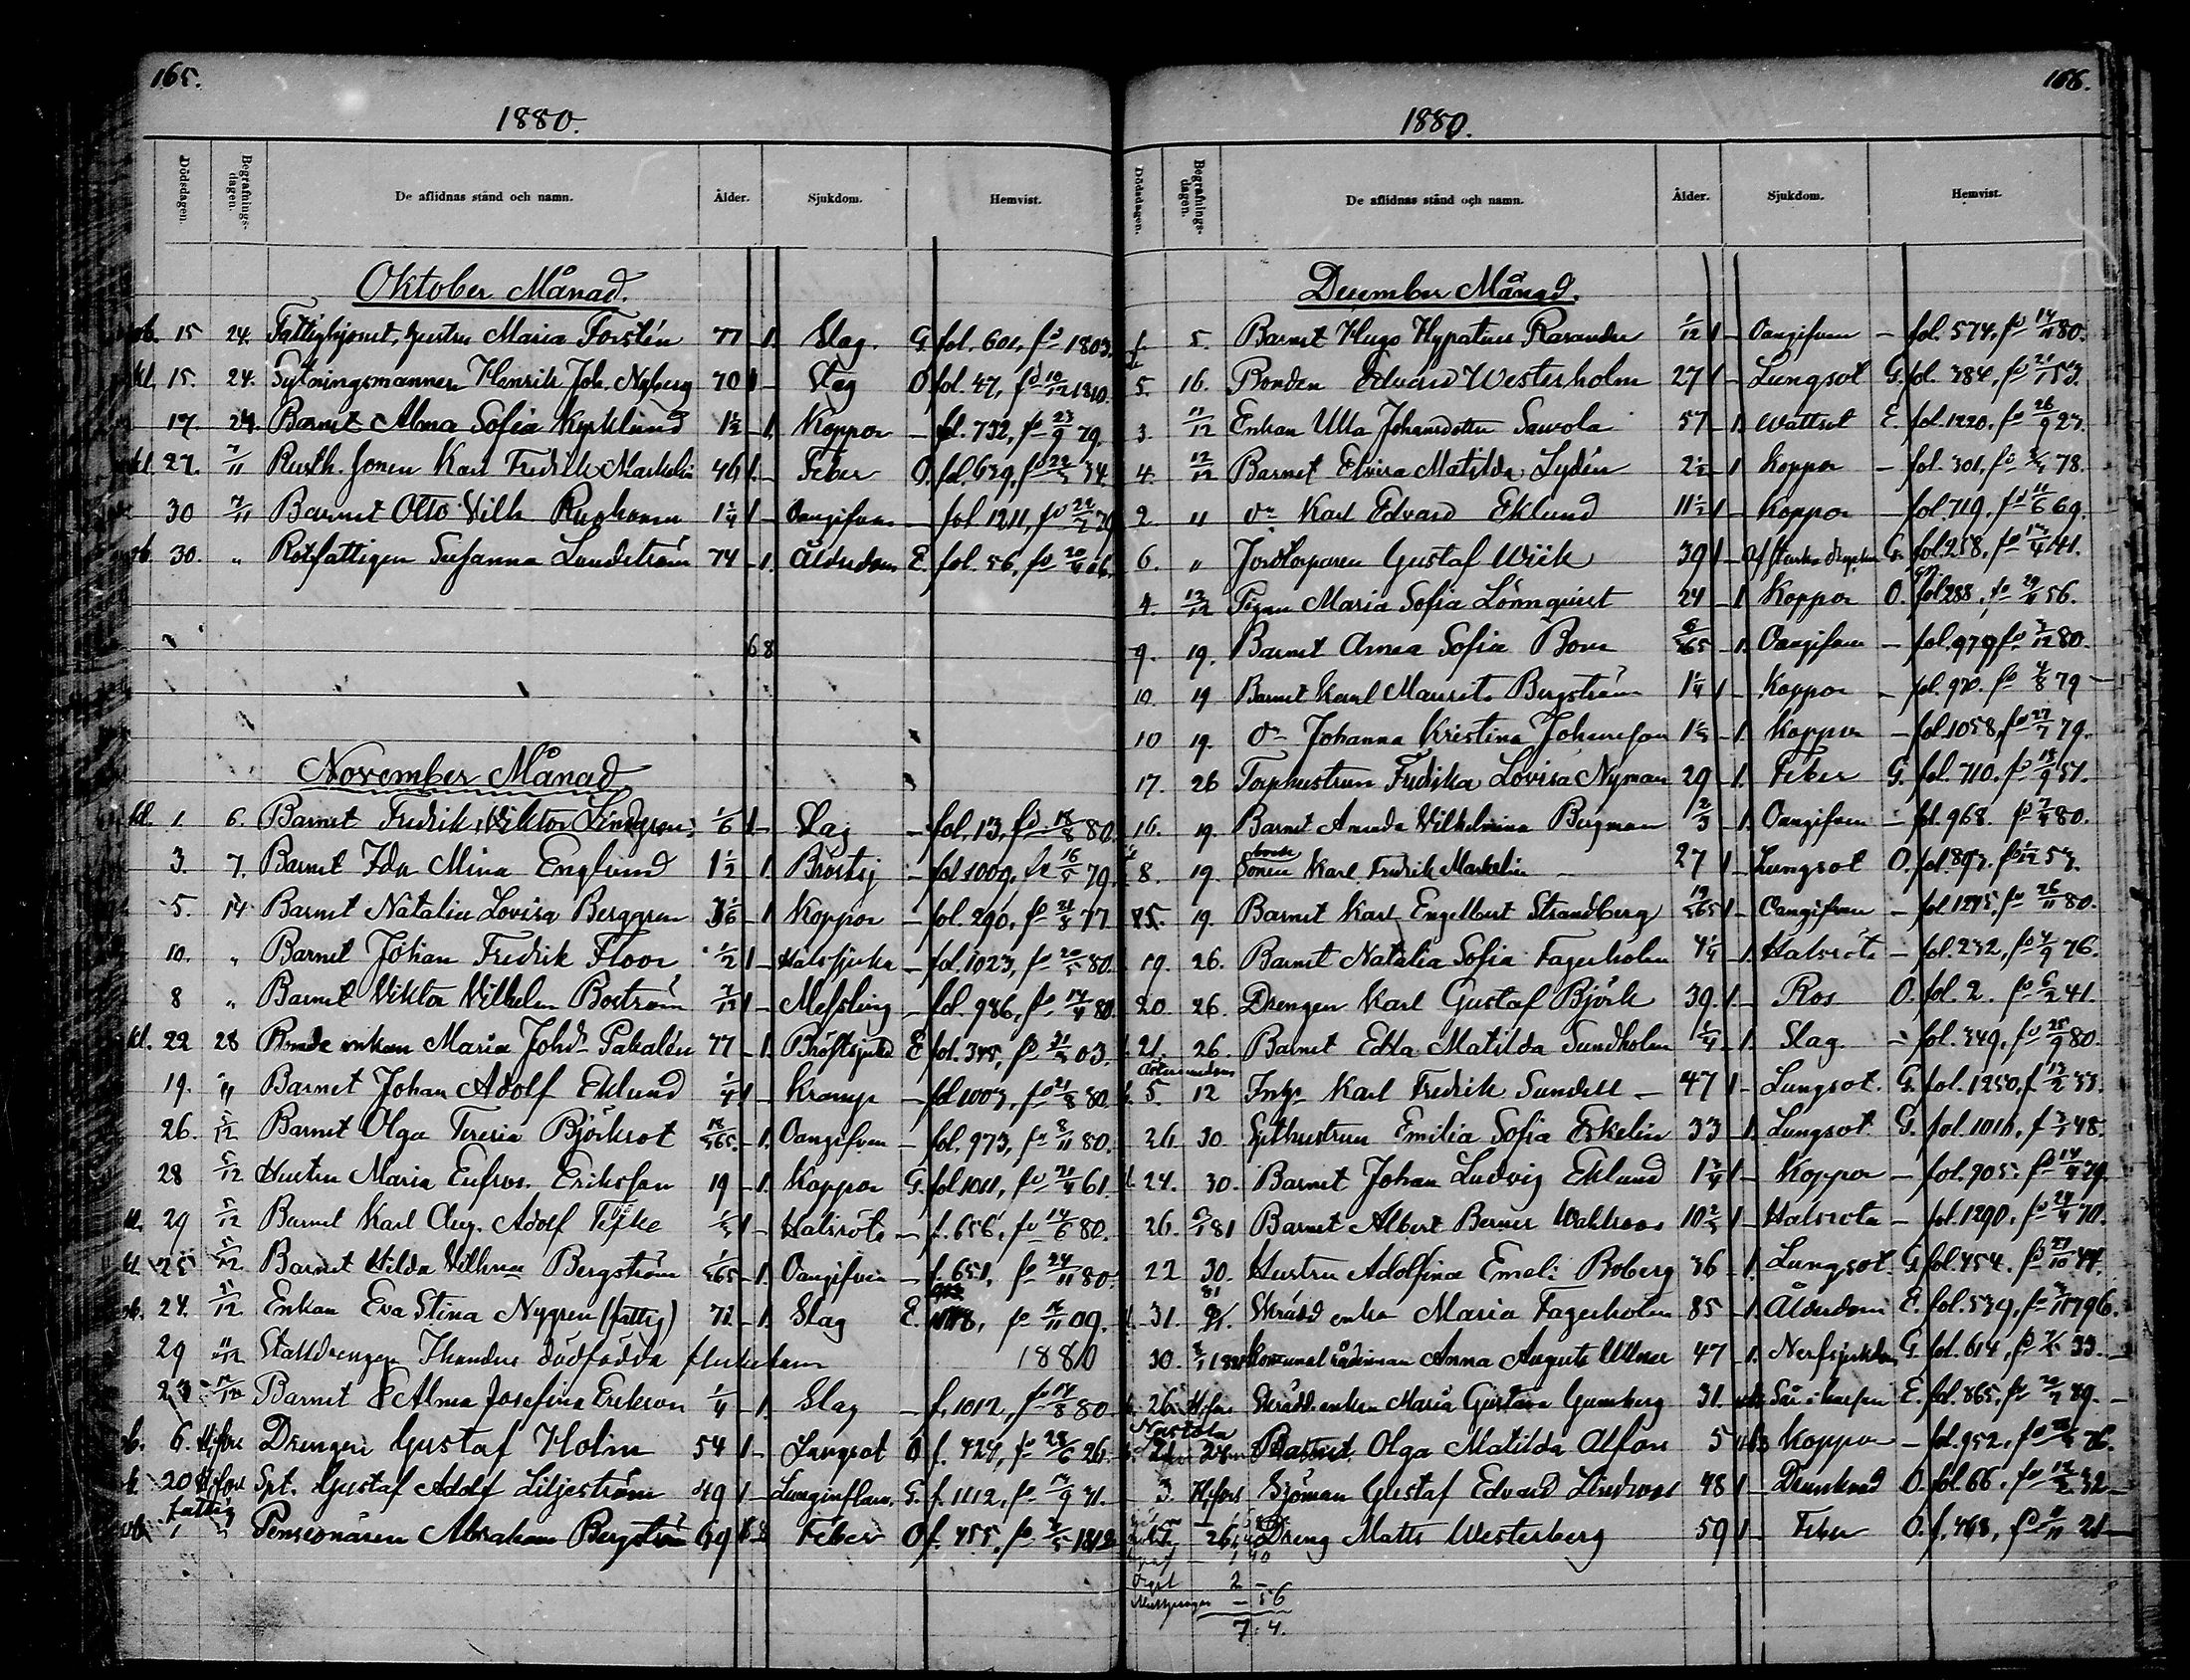 165.
1880.
Dödsdagen. Begrafnings-dagen. De aflidnas stånd och namn. Ålder. Sjukdom. Hemvist.
Oktober Månad.
15 24. Fattighjonet, hustru Maria Forstén 77 - 1. Slag. G. fol. 601, fd 1803.
15. 24. Sytningsmannen Henrik Joh. Nyberg 70 1 - Slag O fol. 47, fd 10/12 1810.
17. 24. Barnet Alma Sofia Kyrklund 1½ - 1. Koppor - fol. 732, fd 23/9 79.
27. 7/11 Rusth. sonen Karl Fredrik Markelin 46 1. - Feber O. fol. 639, fd 34.
30 7/11 Barnet Otto Vilh. 1¼ 1 - Oangifven - fol 1211, fd 79
30. " Rotfattigen Susanna Lundström 74 - 1. Ålderdom E. fol. 56, fd 20/4 06.
6 8
November Månad
1. 6. Barnet Fredrik Viktor Lindgren 1/6 1 - Slag - fol. 13, fd 18/8 80.
3. 7. Barnet Ida Mina Englund 1½ - 1. Bröstsj - fol 1009, fd 16/5 79.
5. 14 Barnet Natalia Lovisa Berggren 3 1/6 - 1 Koppor - fol. 290, fd 21/8 77.
10. " Barnet Johan Fredrik Floor ½ 1 - Halssjuka - fol. 1023, fd 20/5 80.
8 " Barnet Viktor Vilhelm Boström 7/12 1 - Messling - fol. 986, fd 14/4 80.
22 28 Bonde enkan Maria Johdr Pakalén 77 - 1. Bröstsjukd E fol. 345, fd 03.
19. " Barnet Johan Adolf Eklund ¼ 1 - Kramp - fol 1003, fd 21/8 80.
26. 5/12 Barnet Olga Teresia Björkrot 18/365 - 1. Oangifven - fol. 973, fd 8/11 80.
28 5/12 Hustru Maria Eufros. Eriksson 19 - 1. Koppor G. fol 1011, fd 21/4 61.
29 5/12 Barnet Karl Aug. Adolf 1 - Halsröta - f. 656, fd 14/6 80.
25 5/12 Barnet Hilda Vilhna Bergström 1/365 - 1. Oangifven - f. 651, fd 24/11 80.
24. 5/12 Enkan Eva Stina Nygren (fattig) 71 - 1. Slag E. fd 16/11 09.
29 Stalldrengen dödfödda flickebarn 1880
23 12/12 Barnet Alma Josefina Erikson ¼ - 1. Slag - f. 1012, fd 14/8 80.
6. H:fors Drengen Gustaf Holm 54 1 - Lungsot O f. 424, fd 28/6 26.
20 H:fors Spt. Gustaf Adolf Liljeström 49 1 - Lunginflam. G. f. 1112, fd 13/9 31.
fattig
Pensionären Abraham Bergström 69 Feber O f. 455, fd 1812
166.
1880.
Dödsdagen. Begrafnings-dagen. De aflidnas stånd och namn. Ålder. Sjukdom. Hemvist.
December Månad.
1. 5. Barnet Hugo Hypatius Rasander 1/12 1 - Oangifven - fol. 574, fd 14/11 80.
5. 16. Bonden Edvard Westerholm 27 1 - Lungsot G. fol. 384, fd 21/1 53.
3. 11/12 Enkan Ulla Johansdotter Sawola 57 - 1. Wattsot E. fol. 1220, fd 26/9 23.
4. 12/12 Barnet Elvira Matilda Lydén 2½ - 1 Koppor - fol. 301, fd 78.
2. " do Karl Edvard Eklund 11½ 1 - Koppor - fol. 719, fd 11/6 69.
6. " Jordtorparen Gustaf Wiik 39 1 - Af starka drycker G. fol. 258, fd 41.
4. 12/12 Pigan Maria Sofia Lönnquist 24 - 1. Koppor O. fol 288, fd 56.
9. 19. Barnet Anna Sofia Bom 6/365 - 1. Oangifven - fol. 979 fd 3/12 80.
10. 19 Barnet Karl Maurits Bergström 1¼ 1 - Koppor - fol. 970. fd 79
10 19. do Johanna Kristina Johansson - 1. Koppor - fol. 1058, fd 27/7 79.
17. 26 Torphustrun Fredrika Lovisa Nyman 29 - 1. Feber G. fol. 710. fd 18/9 51.
16. 19. Barnet Amanda Vilhelmina Bergman 2/3 - 1. Oangifven - fol. 968. fd 7/4 80.
8. 19. Sonen Karl Fredrik Markelin - 27 1 - Lungsot O. fol. 893. fd 53.
15. 19. Barnet Karl Engelbert Strandberg 19/365 1 - Oangifven - fol. 1275, fd 26/11 80.
19. 26. Barnet Natalia Sofia Fagerholm 4¼ - 1. Halsröta - fol. 232, fd 4/9 76.
20. 26. Drengen Karl Gustaf Björk 39. 1. - Ros O. fol. 2. fd 6/2 41.
21. 26. Barnet Edla Matilda Sundholm ¼ - 1. Slag - fol. 349, fd 25/9 80.
Östersundom
5. 12 Karl Fredrik Sundell - 47 1 - Lungsot. G. fol. 1250, f 13/2 33.
26. 30 Spthustrun Emilia Sofia Eskelin 33 - 1. Lungsot. G. fol. 1011, f 48.
24. 30. Barnet Johan Ludvig Eklund 1¾ 1 - Koppor - fol. 905, fd 14/4 79.
26. 6/1 81 Barnet Albert Berner Wahlroos 10 1 - Halsröta - fol. 1290, fd 24/4 70.
22 30. Hustru Adolfina Emeli Boberg 36 - 1. Lungsot. G. fol. 454. fd 27/10 44.
81
31. Skrädd enka Maria Fagerholm 85 - 1. Ålderdom E. fol. 539, fd 1796.
30. Anna Augusta Ullner 47 - 1. Nerfsjukdom G. fol. 614, fd 33.
26 H:fors Skrädd. enkan Maria Gustava Gumberg 31. E. fol. 865, fd
Nastola
24 Barnet Olga Matilda Alfors 5 Koppor - fol. 952, fd 76.
3. H:fors Sjöman Gustaf Edvard Lindroos 48 1 - Drunknad O. fol. 66, fd 32
26. Dreng Matts Westerberg 59 1 - Feber O. f. 468, fd 21
1 40
2 -
- 56
7. 4.